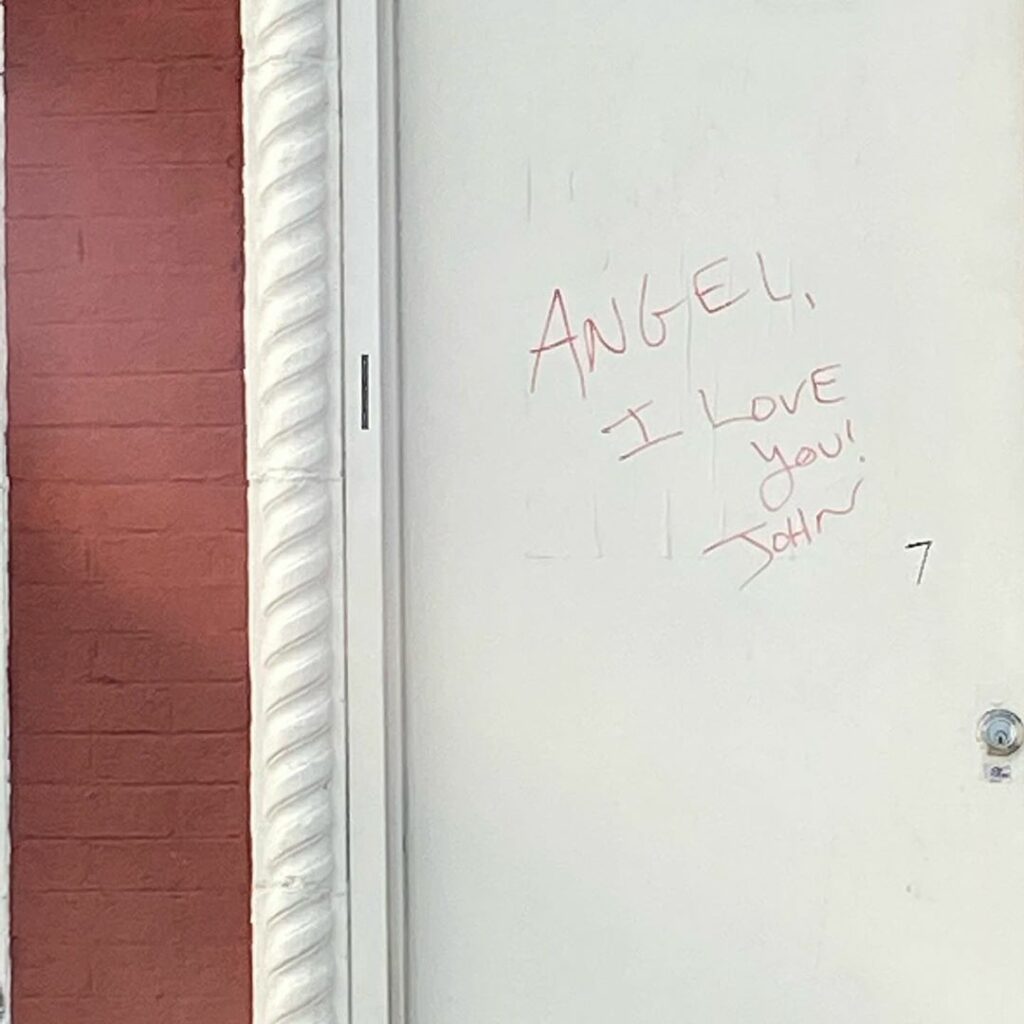 ANGEL,
I LOVE
YOU!
JOHN
7